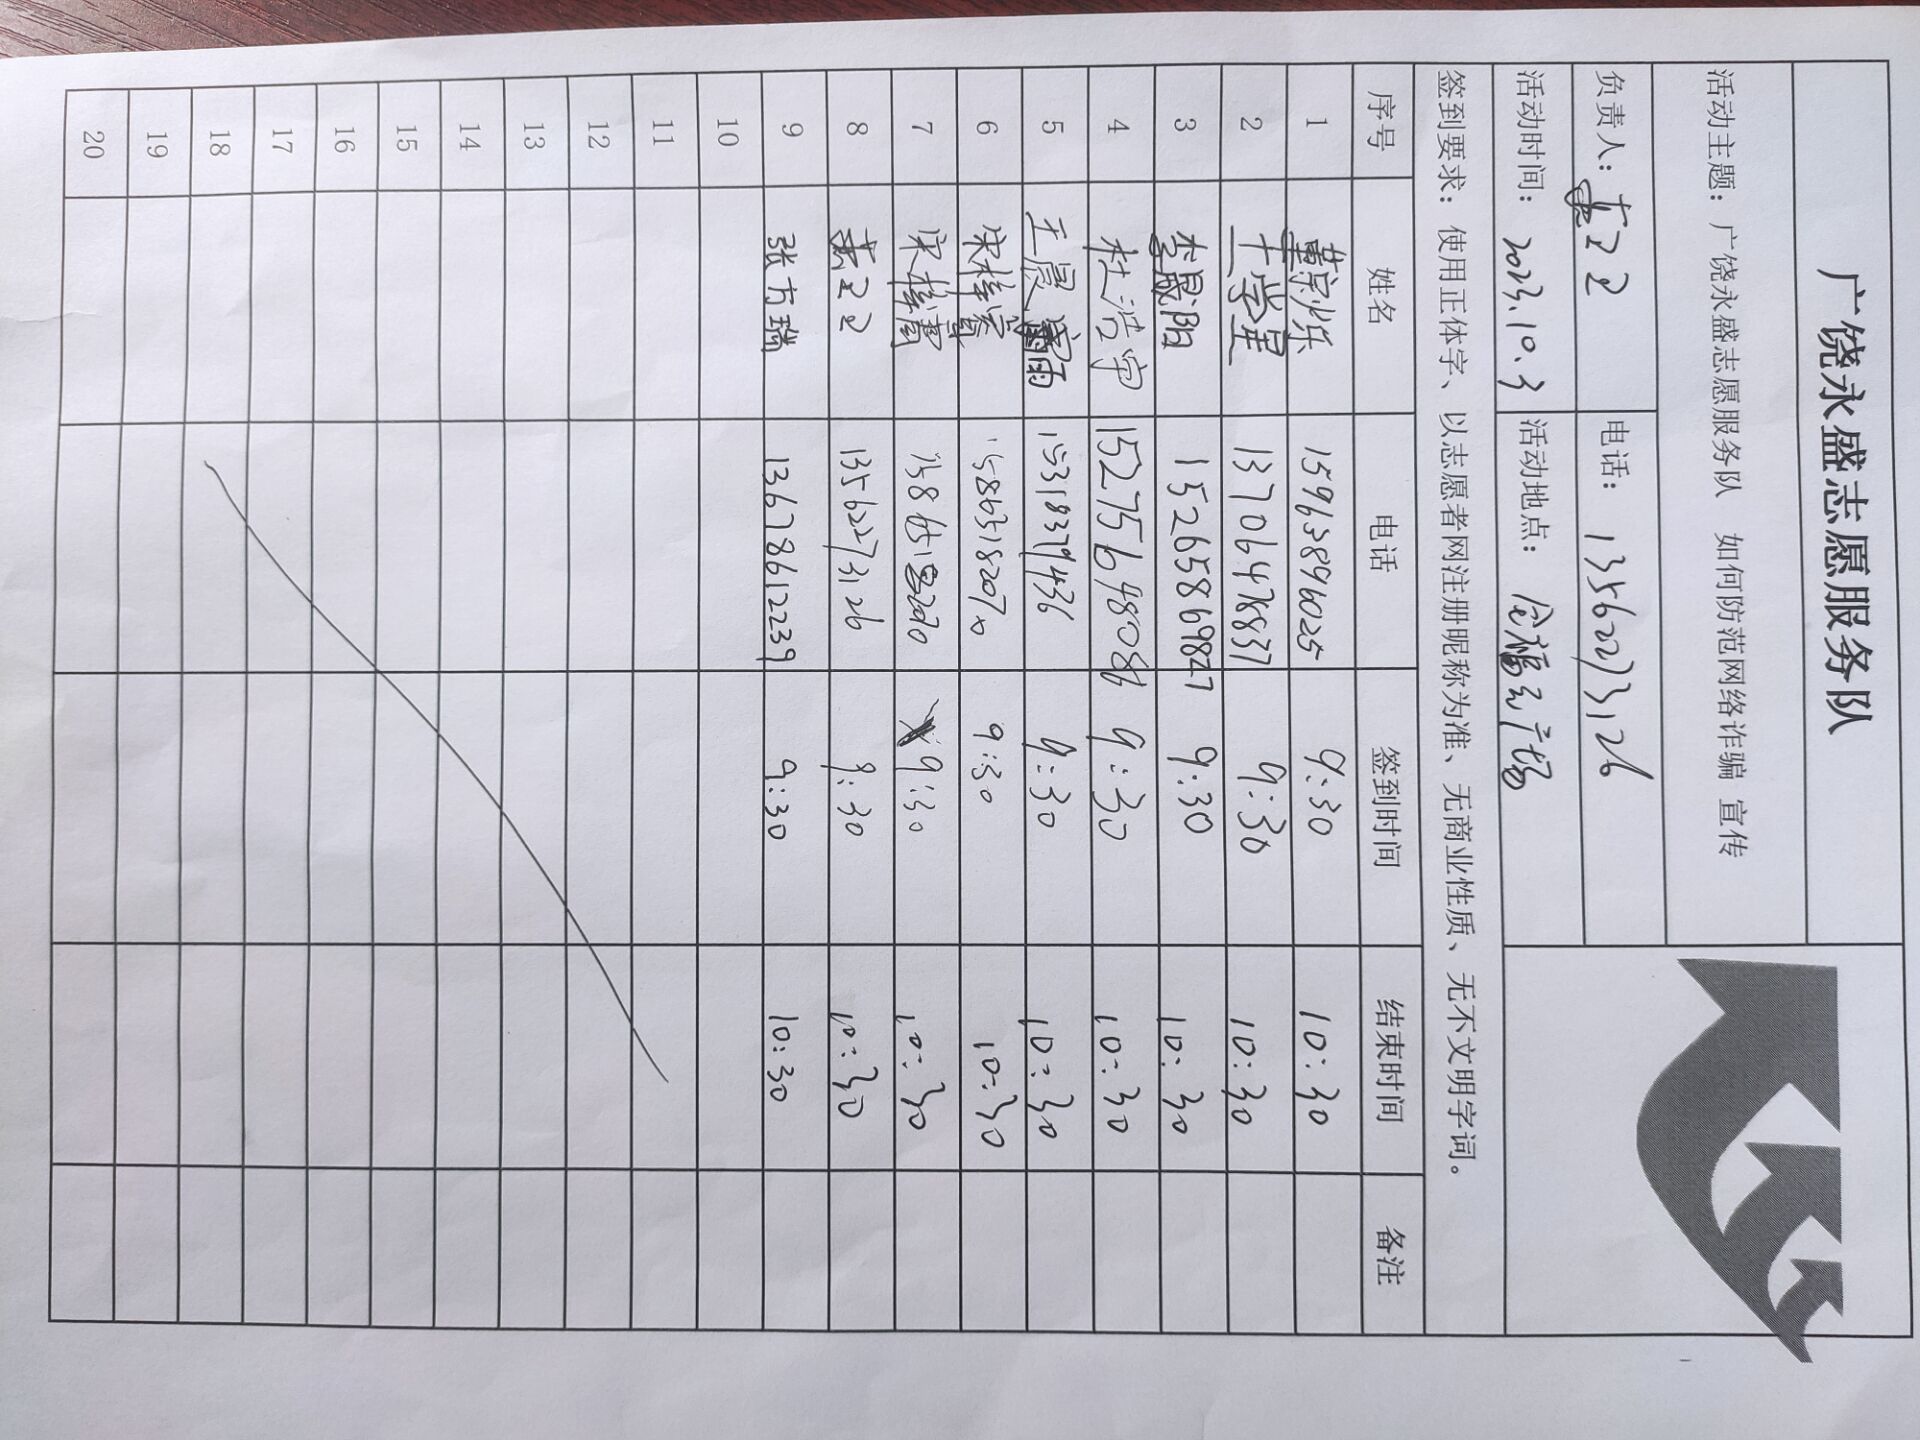 广饶永盛志愿服务队
活动主题：广饶永盛志愿服务队 如何防范网络诈骗 宣传
负责人： 电话：13562273126
活动时间：2023.10.3 活动地点：
签到要求：使用正体字、以志愿者网注册昵称为准、无商业性质、无不文明字词。
序号 姓名 电话 签到时间 结束时间 备注
1 15963896025 9:30 10:30
2 王学星 13706478837 9:30 10:30
3 李晟阳 9:30 10:30
4 杜浩宇 9:30 10:30
5 王晨雨 9:30 10:30
6 9:30 10:30
7 9:30 10:30
8 13562273126 9:30 10:30
9 张方瑞 13678612239 9:30 10:30
10
11
12
13
14
15
16
17
18
19
20